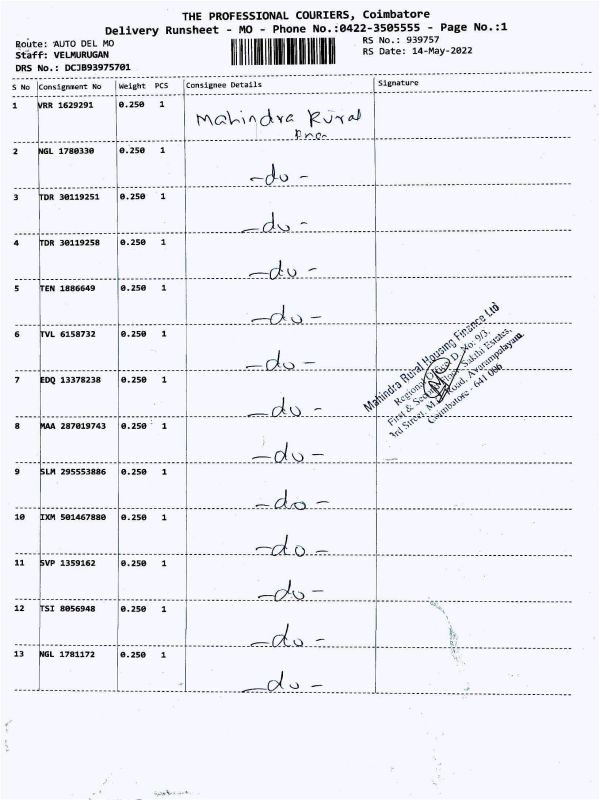 THE PROFESSIONAL COURIERS, Coimbatore
Delivery Runsheet - MO - Phone No.:0422-3505555 - Page No.:1
Route: AUTO DEL MO
RS No.: 939757
Staff: VELMURUGAN
RS Date: 14-May-2022
DRS No.: DCJB93975701
S No Consignment No Weight PCS Consignee Details Signature
1 VRR 1629291 0.250 1 Mahindra Rural
2 NGL 1780330 0.250 1 -do-
3 TDR 30119251 0.250 1 -do-
4 TDR 30119258 0.250 1 -do-
5 TEN 1886649 0.250 1 -do-
6 TVL 6158732 0.250 1 -do-
7 EDQ 13378238 0.250 1 -do-
8 MAA 287019743 0.250 1 -do-
9 SLM 295553886 0.250 1 -do-
10 IXM 501467880 0.250 1 -do-
11 SVP 1359162 0.250 1 -do-
12 TSI 8056948 0.250 1 -do-
13 NGL 1781172 0.250 1 -do-
Mahindra Rural Housing Finance Ltd
Regional D. No: 9/3,
First & Sakthi Estates,
3rd Street, Road, Avarampalayam
Coimbatore - 641 006